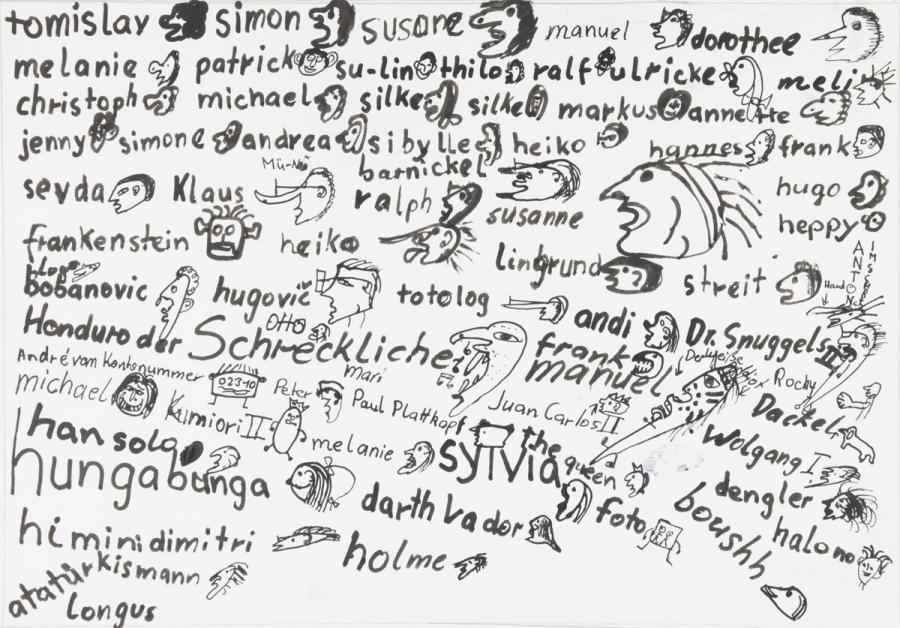 tomislav simon susane manuel dorothee
melanie patrick su-lin thilo ralf ulricke meli
christoph michael silke silke markus annette
jenny simone andrea sibylle heiko hannes frank
sevda Klaus Mü-Nei barnickel hugo
ralph susanne heppy
frankenstein heiko Lindgrund streit ANTON
blogo
bobanovic hugovič totolog andi Dr. Snuggels II
Otto
Honduro der Schreckliche! frank
André van Kontonummer mari manuel Rocky
michael 02340 Peter Paul Plattkopf Juan Carlos II Dackel
Kumiori II melanie Wolgang I
han solo sylvia the queen
hungabunga darth Vador foto dengler
boushh halono
himinidimitri holme
atatürkismann
Longus